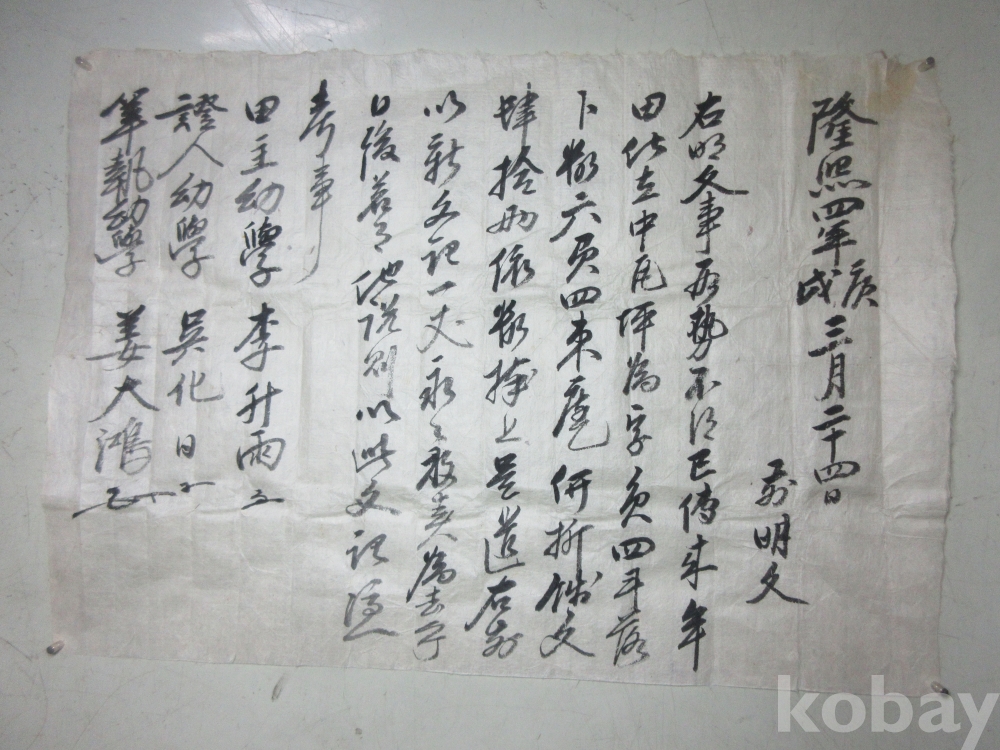 隆熙四年庚戌三月二十四日
前明文
右明文事段勢不得已傳來年
田伏在中瓦坪為字負四斗落
卜數六負四束庫價折錢文
肆拾兩依數捧上是遣右前
以新文記一丈永永放賣為去乎
日後若有他說則以此文記憑
考事
田主幼學 李升雨
證人幼學 吳化日
筆執幼學 姜大鴻
kobay